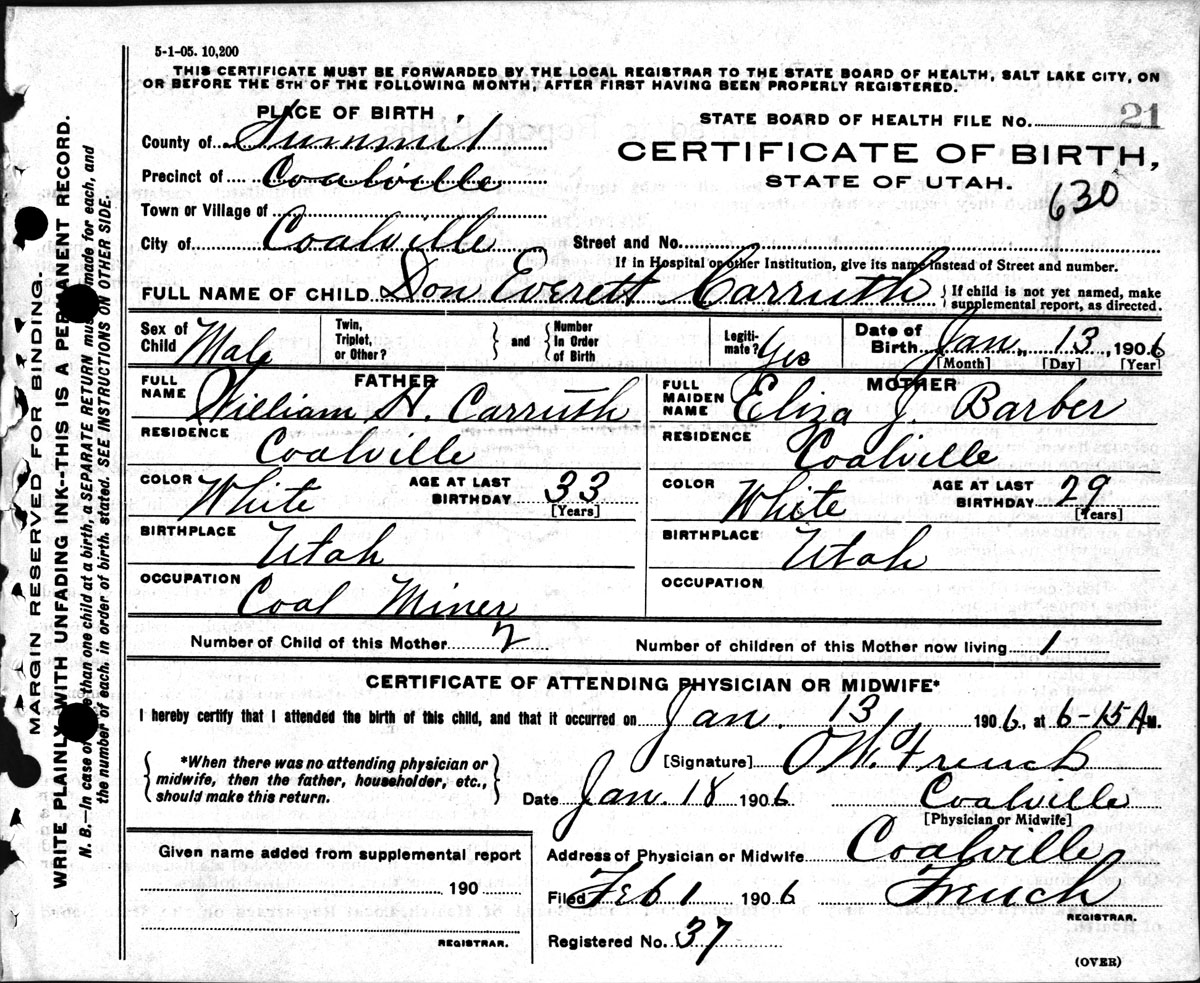 5-1-05. 10,200
THIS CERTIFICATE MUST BE FORWARDED BY THE LOCAL REGISTRAR TO THE STATE BOARD OF HEALTH, SALT LAKE CITY, ON
OR BEFORE THE 5TH OF THE FOLLOWING MONTH, AFTER FIRST HAVING BEEN PROPERLY REGISTERED.
PLACE OF BIRTH
County of Summit
Precinct of Coalville
Town or Village of
City of Coalville
STATE BOARD OF HEALTH FILE No. 21
CERTIFICATE OF BIRTH,
STATE OF UTAH.
630
Street and No.
If in Hospital or other Institution, give its name instead of Street and number.
FULL NAME OF CHILD Don Everett Carruth { If child is not yet named, make
supplemental report, as directed.
Sex of Child Male
Twin, Triplet, or Other? } and { Number In Order of Birth
Legiti-mate? Yes
Date of Birth Jan. 13, 1906
[Month] [Day] [Year]
FATHER
FULL NAME William H. Carruth
RESIDENCE
Coalville
COLOR White AGE AT LAST BIRTHDAY 33
[Years]
BIRTHPLACE
Utah
OCCUPATION
Coal Miner
MOTHER
FULL MAIDEN NAME Eliza J. Barber
RESIDENCE
Coalville
COLOR White AGE AT LAST BIRTHDAY 29
[Years]
BIRTHPLACE
Utah
OCCUPATION
Number of Child of this Mother 2 Number of children of this Mother now living 1
CERTIFICATE OF ATTENDING PHYSICIAN OR MIDWIFE*
I hereby certify that I attended the birth of this child, and that it occurred on Jan. 13, 1906, at 6-15 A M.
{ *When there was no attending physician or
midwife, then the father, householder, etc.,
should make this return. }
[Signature] O W. French
Date Jan. 18 1906 Coalville
[Physician or Midwife]
Address of Physician or Midwife Coalville
Filed Feb 1 1906 French
REGISTRAR.
Registered No. 37
Given name added from supplemental report
190
REGISTRAR.
(OVER)
MARGIN RESERVED FOR BINDING.
WRITE PLAINLY WITH UNFADING INK--THIS IS A PERMANENT RECORD.
N. B.—In case of more than one child at a birth, a SEPARATE RETURN must be made for each, and
the number of each, in order of birth, stated. SEE INSTRUCTIONS ON OTHER SIDE.